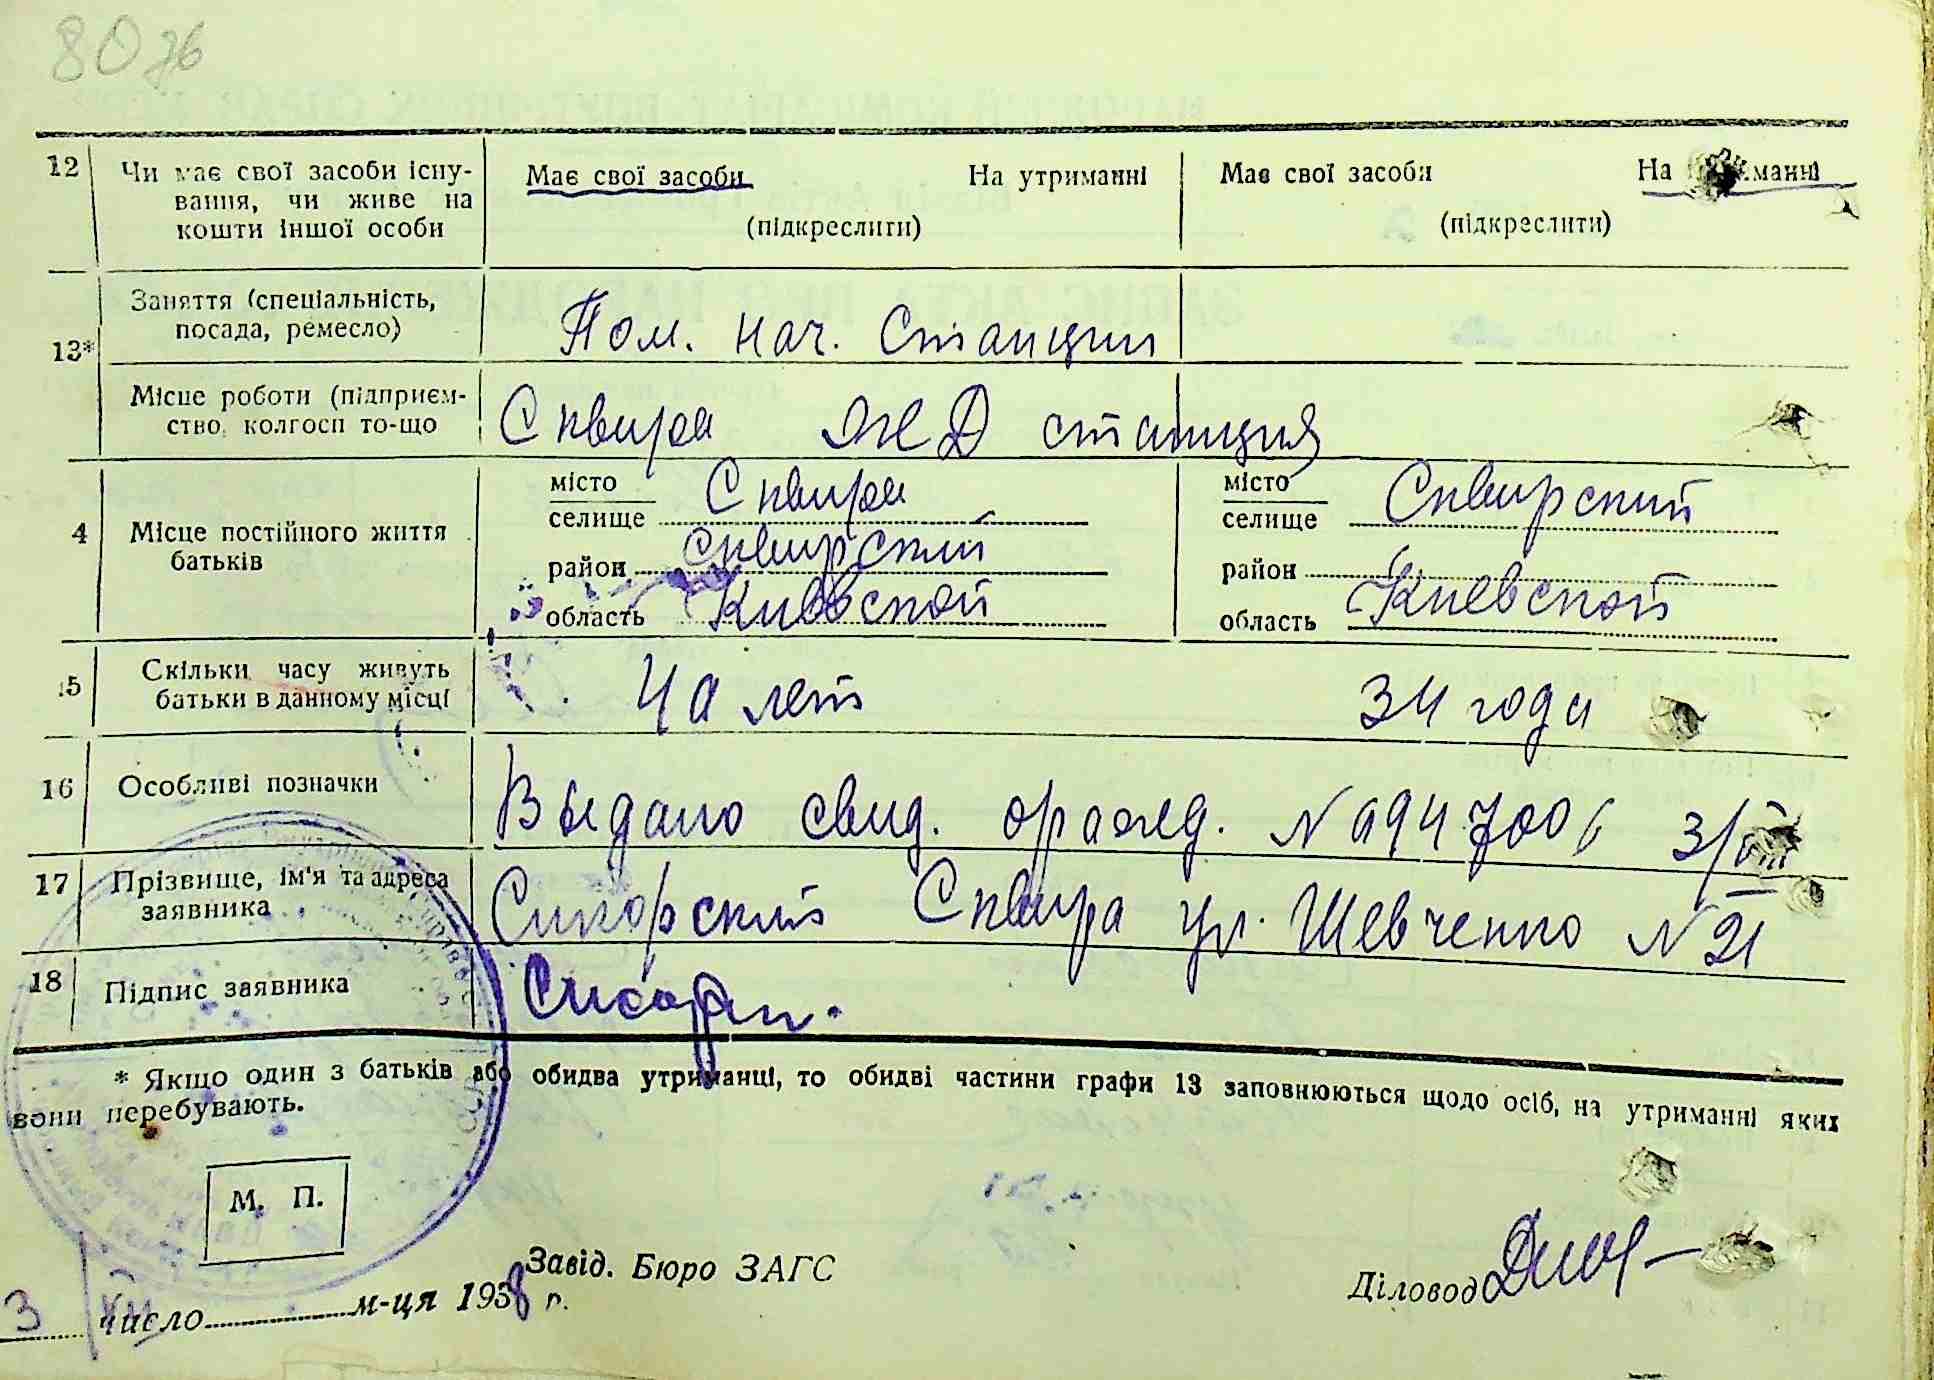 80 зв
12 Чи має свої засоби існу- Має свої засоби На утриманні Має свої засоби На манні
вання, чи живе на (підкреслиги) (підкреслити)
кошти іншої особи
13* Заняття (спеціальність, Пом. нач. Станции
посада, ремесло)
Місце роботи (підприєм- Сквира ЖД станция
ство, колгосп то-що
місто Сквира місто Сквирский
4 Місце постійного життя селище селище
батьків район Сквирский район
область Киевской область Киевской
15 Скільки часу живуть лет 34 года
батьки в данному місці
16 Особливі позначки Выдано свид. о ражд. N 3/
17 Прізвище, ім'я та адреса Сикорский Сквира ул. Шевченко N 21
заявника
18 Підпис заявника
* Якщо один з батьків або обидва утриманці, то обидві частини графи 13 заповнюються щодо осіб, на утриманні яких
вони перебувають.
М. П.
Завід. Бюро ЗАГС
Діловод
3 число м-ця 1938 р.